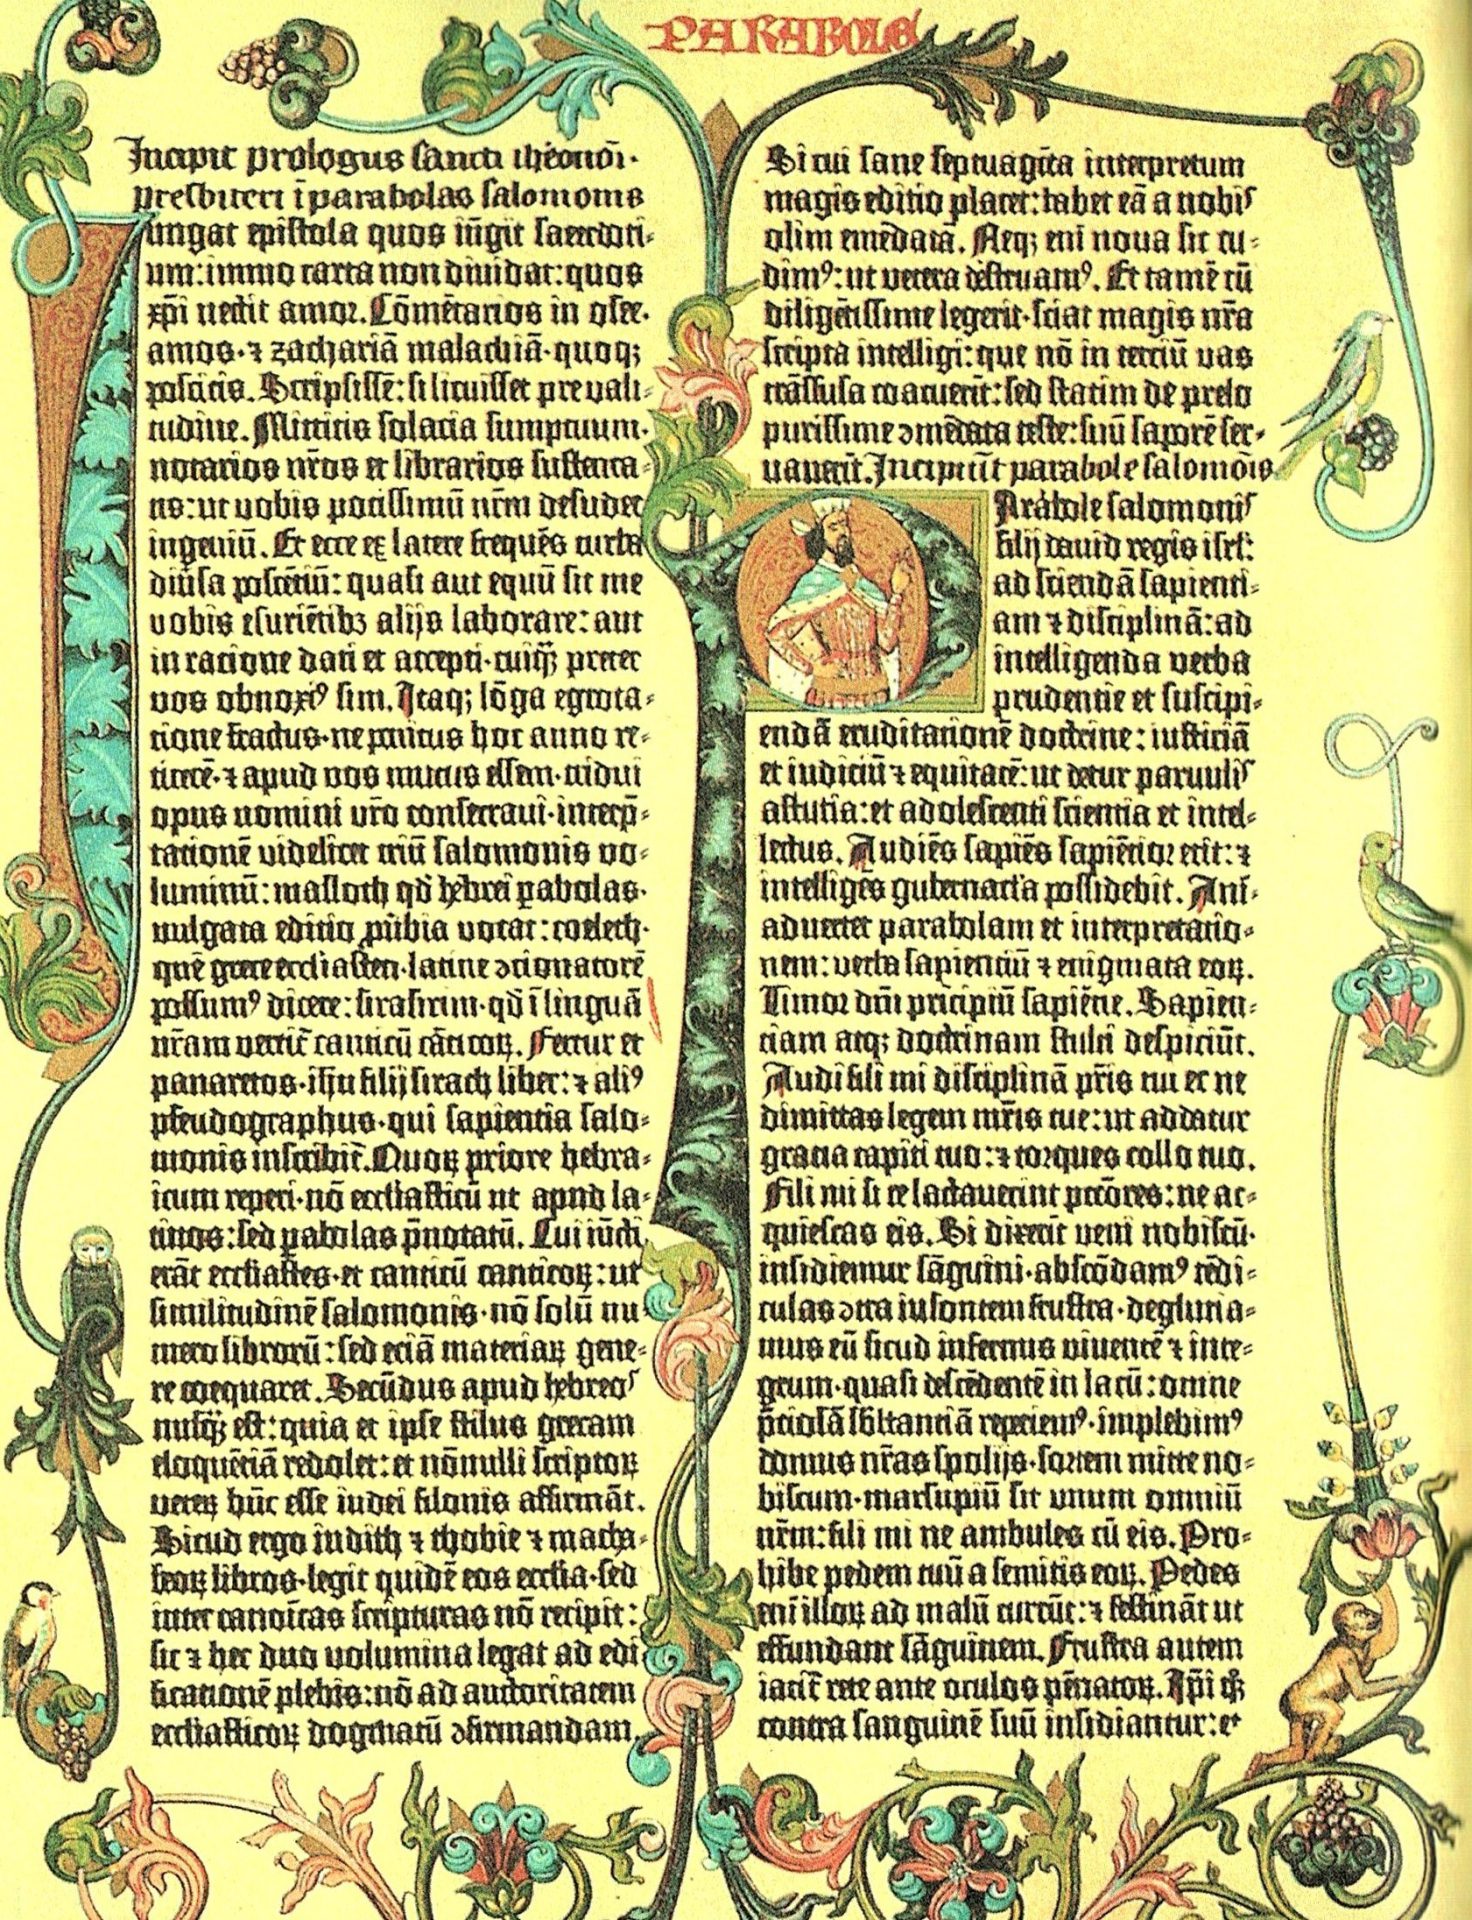 PARABOLE
Incipit prologus sancti iheronimi
presbiteri ī parabolas salomonis
ungat epistola quos iūgit sacerdoti-
um: immo carta non dividat: quos
xp̄i nectit amor. Cōmētarios in osee.
amos. ⁊ zachariā malachiā. quoqȝ
poscitis. Scripsissē: si licuisset pre vali-
tudine. Mittitis solacia sumptuum.
notarios nr̄os et librarios sustenta-
tis: ut vobis potissimū nr̄m desudet
ingeniū. Et ecce eꝝ latere frequēs turba
diūsa poscētiū: quasi aut equū sit me
vobis esuriētibȝ alijs laborare: aut
in racione dati et accepti. cuiqȝ preter
vos obnoxiꝰ sim. Itaqȝ lōga egrota-
tione fractus. ne penitus hoc anno re-
ticerē. ⁊ apud vos mutus essem. tridui
opus nomini vr̄o consecravi. interp̄-
tationē videlicet triū salomonis vo-
luminū: masloth qd̄ hebrei ꝑabolas.
vulgata editio ꝓūbia vocat: coeleth.
quē grece eccl̄iasten. latine ɔcionatorē
possumꝰ dicere: sirasirim. qd̄ ī linguā
nr̄am vertit̄ canticū cāticoꝝ. Fertur et
panaretos. ih̄u filij sirach liber: ⁊ aliꝰ
pseudographus. qui sapientia salo-
monis inscribit̄. Quoꝝ priorē hebra-
icum reperi. nō eccl̄iasticū ut apud la-
tinos: sed ꝑabolas p̄notatū. Cui iūcti
erāt eccl̄iastes. et canticū canticoꝝ: ut
similitudinē salomonis. nō solū nu-
mero librorū: sed eciā materiaꝝ gene-
re coequaret. Secūdus apud hebreos
nusqȝ est: quia et ipse stilus grecam
eloquētiā redolet: et nōnulli scriptoꝝ
veteꝝ hūc esse iudei filonis affirmāt.
Sicud ergo iudith ⁊ thobie ⁊ macha-
beoꝝ libros. legit quidē eos eccl̄ia. sed
inter canoīcas scripturas nō recipit:
sic ⁊ hec duo volumina legat ad edi
ficationē plebis: nō ad auctoritatem
eccl̄iasticoꝝ dogmatū ɔfirmandam.
Si cui sane septuagīta interpretum
magis editio placet: habet eā a nobis
olim emēdatā. Neqȝ enī nova sic cu-
dimꝰ: ut vetera destruamꝰ. Et tamē cū
diligētissime legerit. sciat magis nr̄a
scripta intelligi: que nō in terciū vas
trāsfusa coacuerīt: sed statim de prelo
purissime ɔmēdata teste: suū saporē ser-
vaverīt. Incipiūt parabole salomōis
Parabole salomonis
filij david regis isrl̄:
ad sciendā sapienti-
am ⁊ disciplinā: ad
intelligenda verba
prudentie et suscipi-
endā eruditationē doctrine: iusticiā
et iudiciū ⁊ equitatē: ut detur parvulis
astutia: et adolescenti scientia et intel-
lectus. Audiēs sapiēs sapiētior erit: ⁊
intelligēs gubernacl̄a possidebit. Anī-
advertet parabolam et interpretatio-
nem: verba sapientiū ⁊ enigmata eoꝝ.
Timor dn̄i pricipiū sapiētie. Sapien-
ciam atqȝ doctrinam stulti despiciūt.
Audi fili mi disciplinā pr̄is tui et ne
dimittas legem mr̄is tue: ut addatur
gracia capiti tuo: ⁊ torques collo tuo.
Fili mi si te lactaverint pctōres: ne ac-
quiescas eis. Si dixerīt veni nobiscū.
insidiemur sāguini. abscōdamꝰ tēdi-
culas ɔtra insontem frustra. deglutia-
mus eū sicud infernus viventē ⁊ inte-
grum. quasi descēdentē in lacū: omnē
p̄ciosā sb̄stantiā repeiemꝰ. implebimꝰ
domus nr̄as spolijs. sortem mitte no-
biscum. marsupiū sit unum omniū
nr̄m: fili mi ne ambules cū eis. Pro-
hibe pedem tuū a semitis eoꝝ. Pedes
enī illoꝝ ad malū currūt: ⁊ festināt ut
effundant sāguinem. Frustra autem
iacit̄ rete ante oculos pēnatoꝝ. Ip̄i qȝ
contra sanguinē suū insidiantur: et